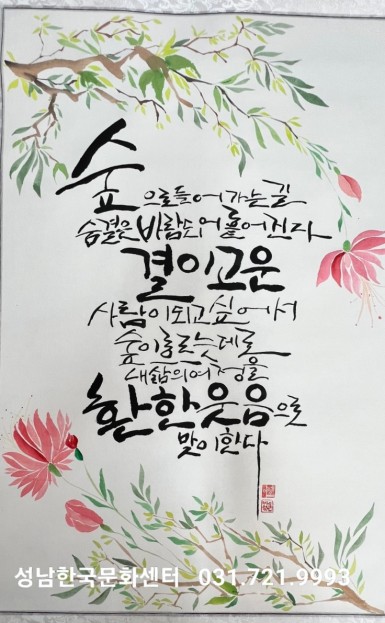 숲으로 들어가는 길
숨결은 바람도 어 풀어진다
결이고운
사람이 되고 싶어서
숲이 흐르는 데로
내 삶의 여정을
환한웃음으로
맞이한다
성남한국문화센터 031.721.9993